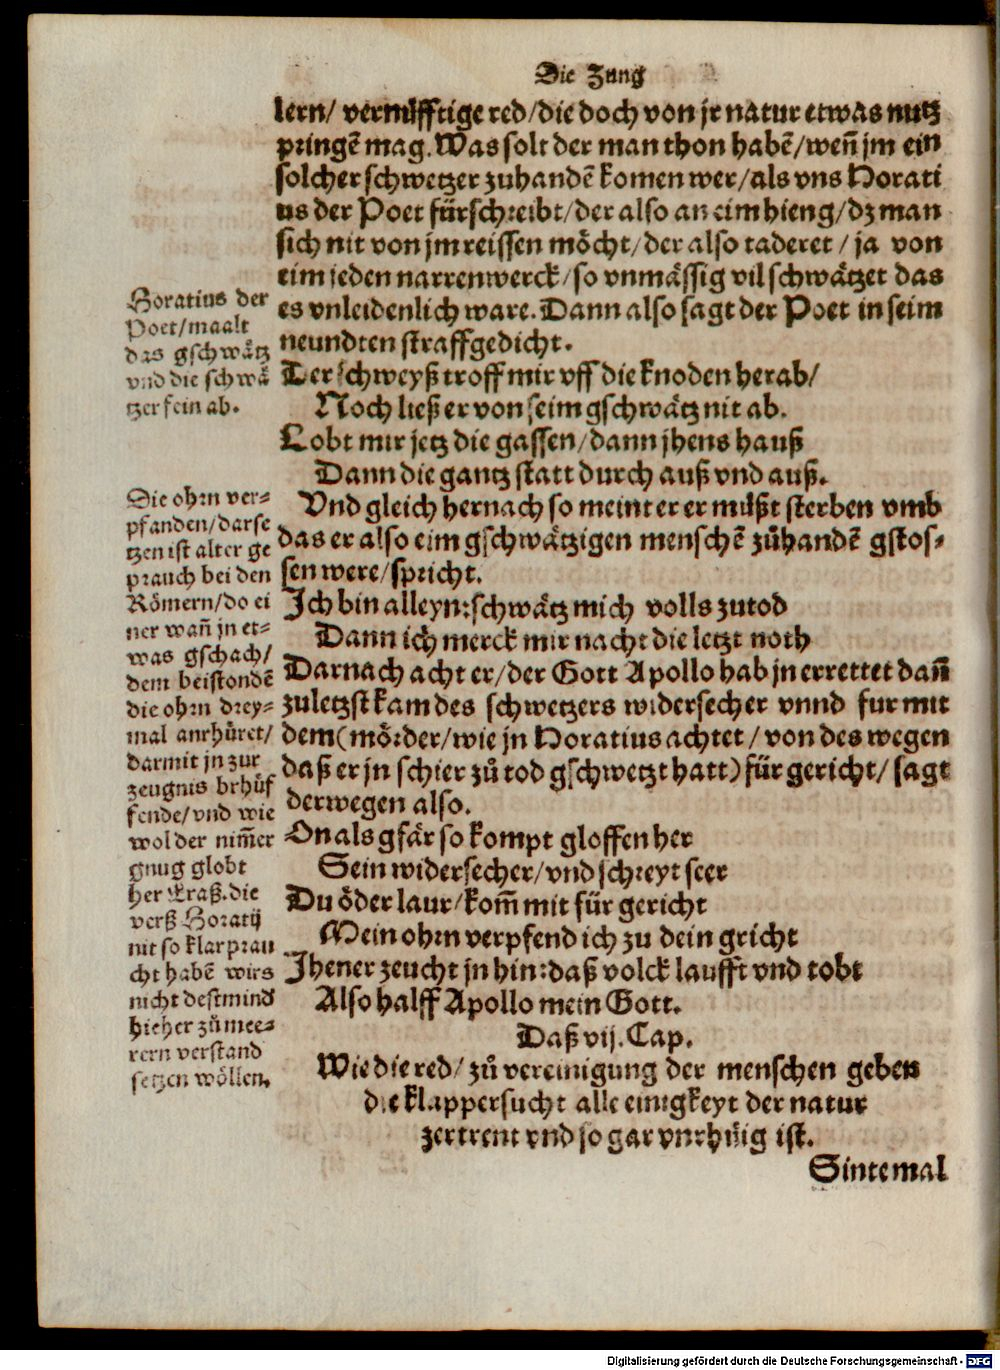 Die Zung
lern/ vernüfftige red/die doch von jr natur etwas nutz
pringẽ mag. Was solt der man thon habẽ/weñ jm ein
solcher schwetzer zuhandẽ komen wer/als vns Horati
us der Poet fürschreibt/der also an eim hieng/dz man
sich nit von jm reissen möcht/der also taderet/ ja von
eim jeden narrenwerck/so vnmässig vil schwätzet das
es vnleidenlich ware. Dann also sagt der Poet in seim
neundten straffgedicht.
Der schweyß troff mir vff die knoden herab/
Noch ließ er von seim gschwätz nit ab.
Lobt mir jetz die gassen/dann jhens hauß
Dann die gantz statt durch auß vnd auß.
Vnd gleich hernach so meint er er müßt sterben vmb
das er also eim gschwätzigen menschẽ zůhandẽ gstos-
sen were/spricht.
Ich bin alleyn:schwätz mich volls zutod
Dann ich merck mir nacht die letzt noth
Darnach acht er/der Gott Apollo hab jn errettet dañ
zuletzst kam des schwetzers widersecher vnnd fur mit
dem(mörder/wie jn Horatius achtet/von des wegen
daß er jn schier zů tod gschwetzt hatt)für gericht/ sagt
derwegen also.
On als gfär so kompt gloffen her
Sein widersecher/vnd schreyt seer
Du öder laur/kom̃ mit für gericht
Mein ohrn verpfend ich zu dein gricht
Jhener zeucht jn hin:daß volck laufft vnd tobt
Also halff Apollo mein Gott.
Daß vij. Cap.
Wie die red/ zů vereinigung der menschen geben
die klappersucht alle einigkeyt der natur
zertrent vnd so gar vnrhüig ist.
Sintemal
Horatius der
Poet/maalt
das gschwätz
vnd die schwä
tzer fein ab.
Die ohrn ver-
pfanden/darse
tzen ist alter ge
prauch bei den
Römern/do ei
ner wañ jn et-
was gschach/
dem beistondẽ
die ohrn drey-
mal anrhüret/
darmit jn zur
zeugnis brhüf
fende/vnd wie
wol der nim̃er
gnug globt
her Eraß.die
verß Horatij
nit so klar prau
cht habẽ wirs
nicht destmind
hieher zů mee-
rern verstand
setzen wöllen.
Digitalisierung gefördert durch die Deutsche Forschungsgemeinschaft - DFG